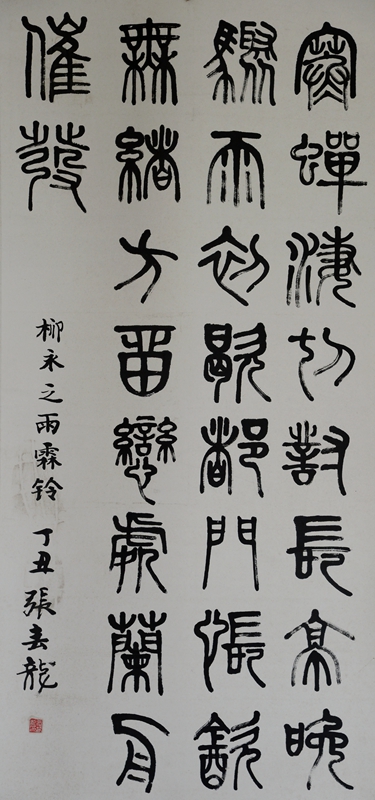 寒蟬淒切對長亭晚
驟雨初歇都門悵飲
無緒方留戀處蘭舟
催發
柳永之雨霖铃 丁丑 張春龍